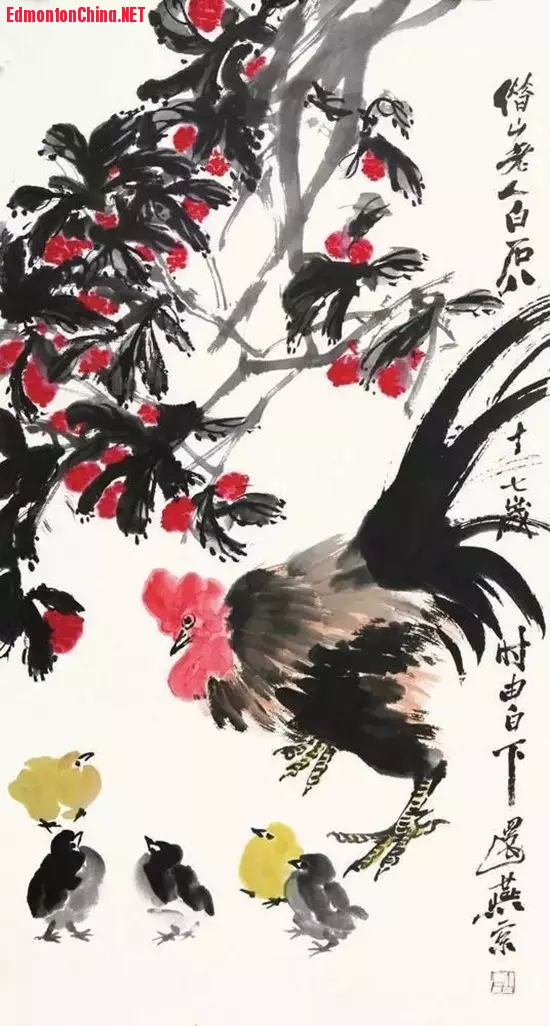 EdmontonChina.NET
借山老人白石八十七歲时由白下還燕京